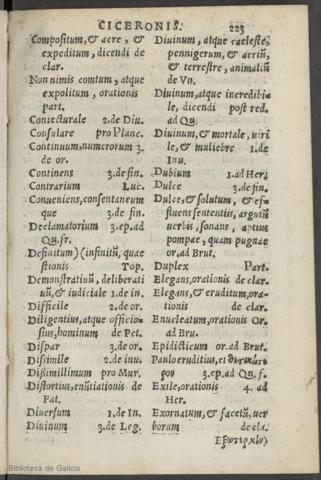 CICERONIS. 223
Compositum, & acre, &
expeditum, dicendi de
clar.
Non nimis comtum, atque
expolitum, orationis
part.
Coniecturale 2.de Diu.
Consulare pro Planc.
Continuum, numerorum 3.
de or.
Continens 3.de fin.
Contrarium Luc.
Conueniens, consentaneum
que 3.de fin.
Declamatorium 3.ep.ad
Qu.fr.
Definitum) (infinitũ, quae
stionis Top.
Demonstratiuũ, deliberati
uũ, & iudiciale 1.de in.
Difficile 2.de or.
Diligentius, atque officio-
sius, hominum de Pet.
Dispar 3.de or.
Dissimile 2.de inu.
Dissimillimum pro Mur.
Distortius, enũtiationis de
Fat.
Diuersum 1.de In.
Diuinum 3.de Leg.
Diuinum, atque caeleste,
pennigerum, & aeriũ,
& terrestre, animaliũ
de Vn.
Diuinum, atque incredibi
le, dicendi post red.
ad Qu.
Diuinum, & mortale, uiri
le, & muliebre 1.de
Inu.
Dubium 1.ad Her.
Dulce 3.de fin.
Dulce, & solutum, & ef-
fluens sententiis, argutũ
uerbis, sonans, aptius
pompae, quam pugnae
or.ad Brut.
Duplex Part.
Elegans, orationis de clar.
Elegans, & eruditum, ora-
tionis de clar.
Enucleatum, orationis Or.
ad Bru.
Epidicticum or.ad Brut.
Paulo eruditius, et
3.ep.ad Qu.f.
Exile, orationis 4. ad
Her.
Exornatum, & facetũ, uer
borum de cla.
Biblioteca de Galicia